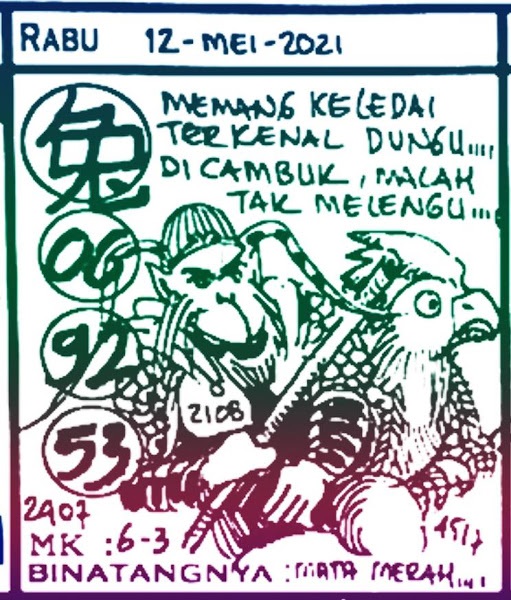 RABU 12-MEI-2021
兔
MEMANG KELEDAI
TERKENAL DUNGU....
DI CAMBUK, MALAH
TAK MELENGU...
06
92
53
2108
2907
MK : 6-3
4517
BINATANGNYA : MATA MERAH....